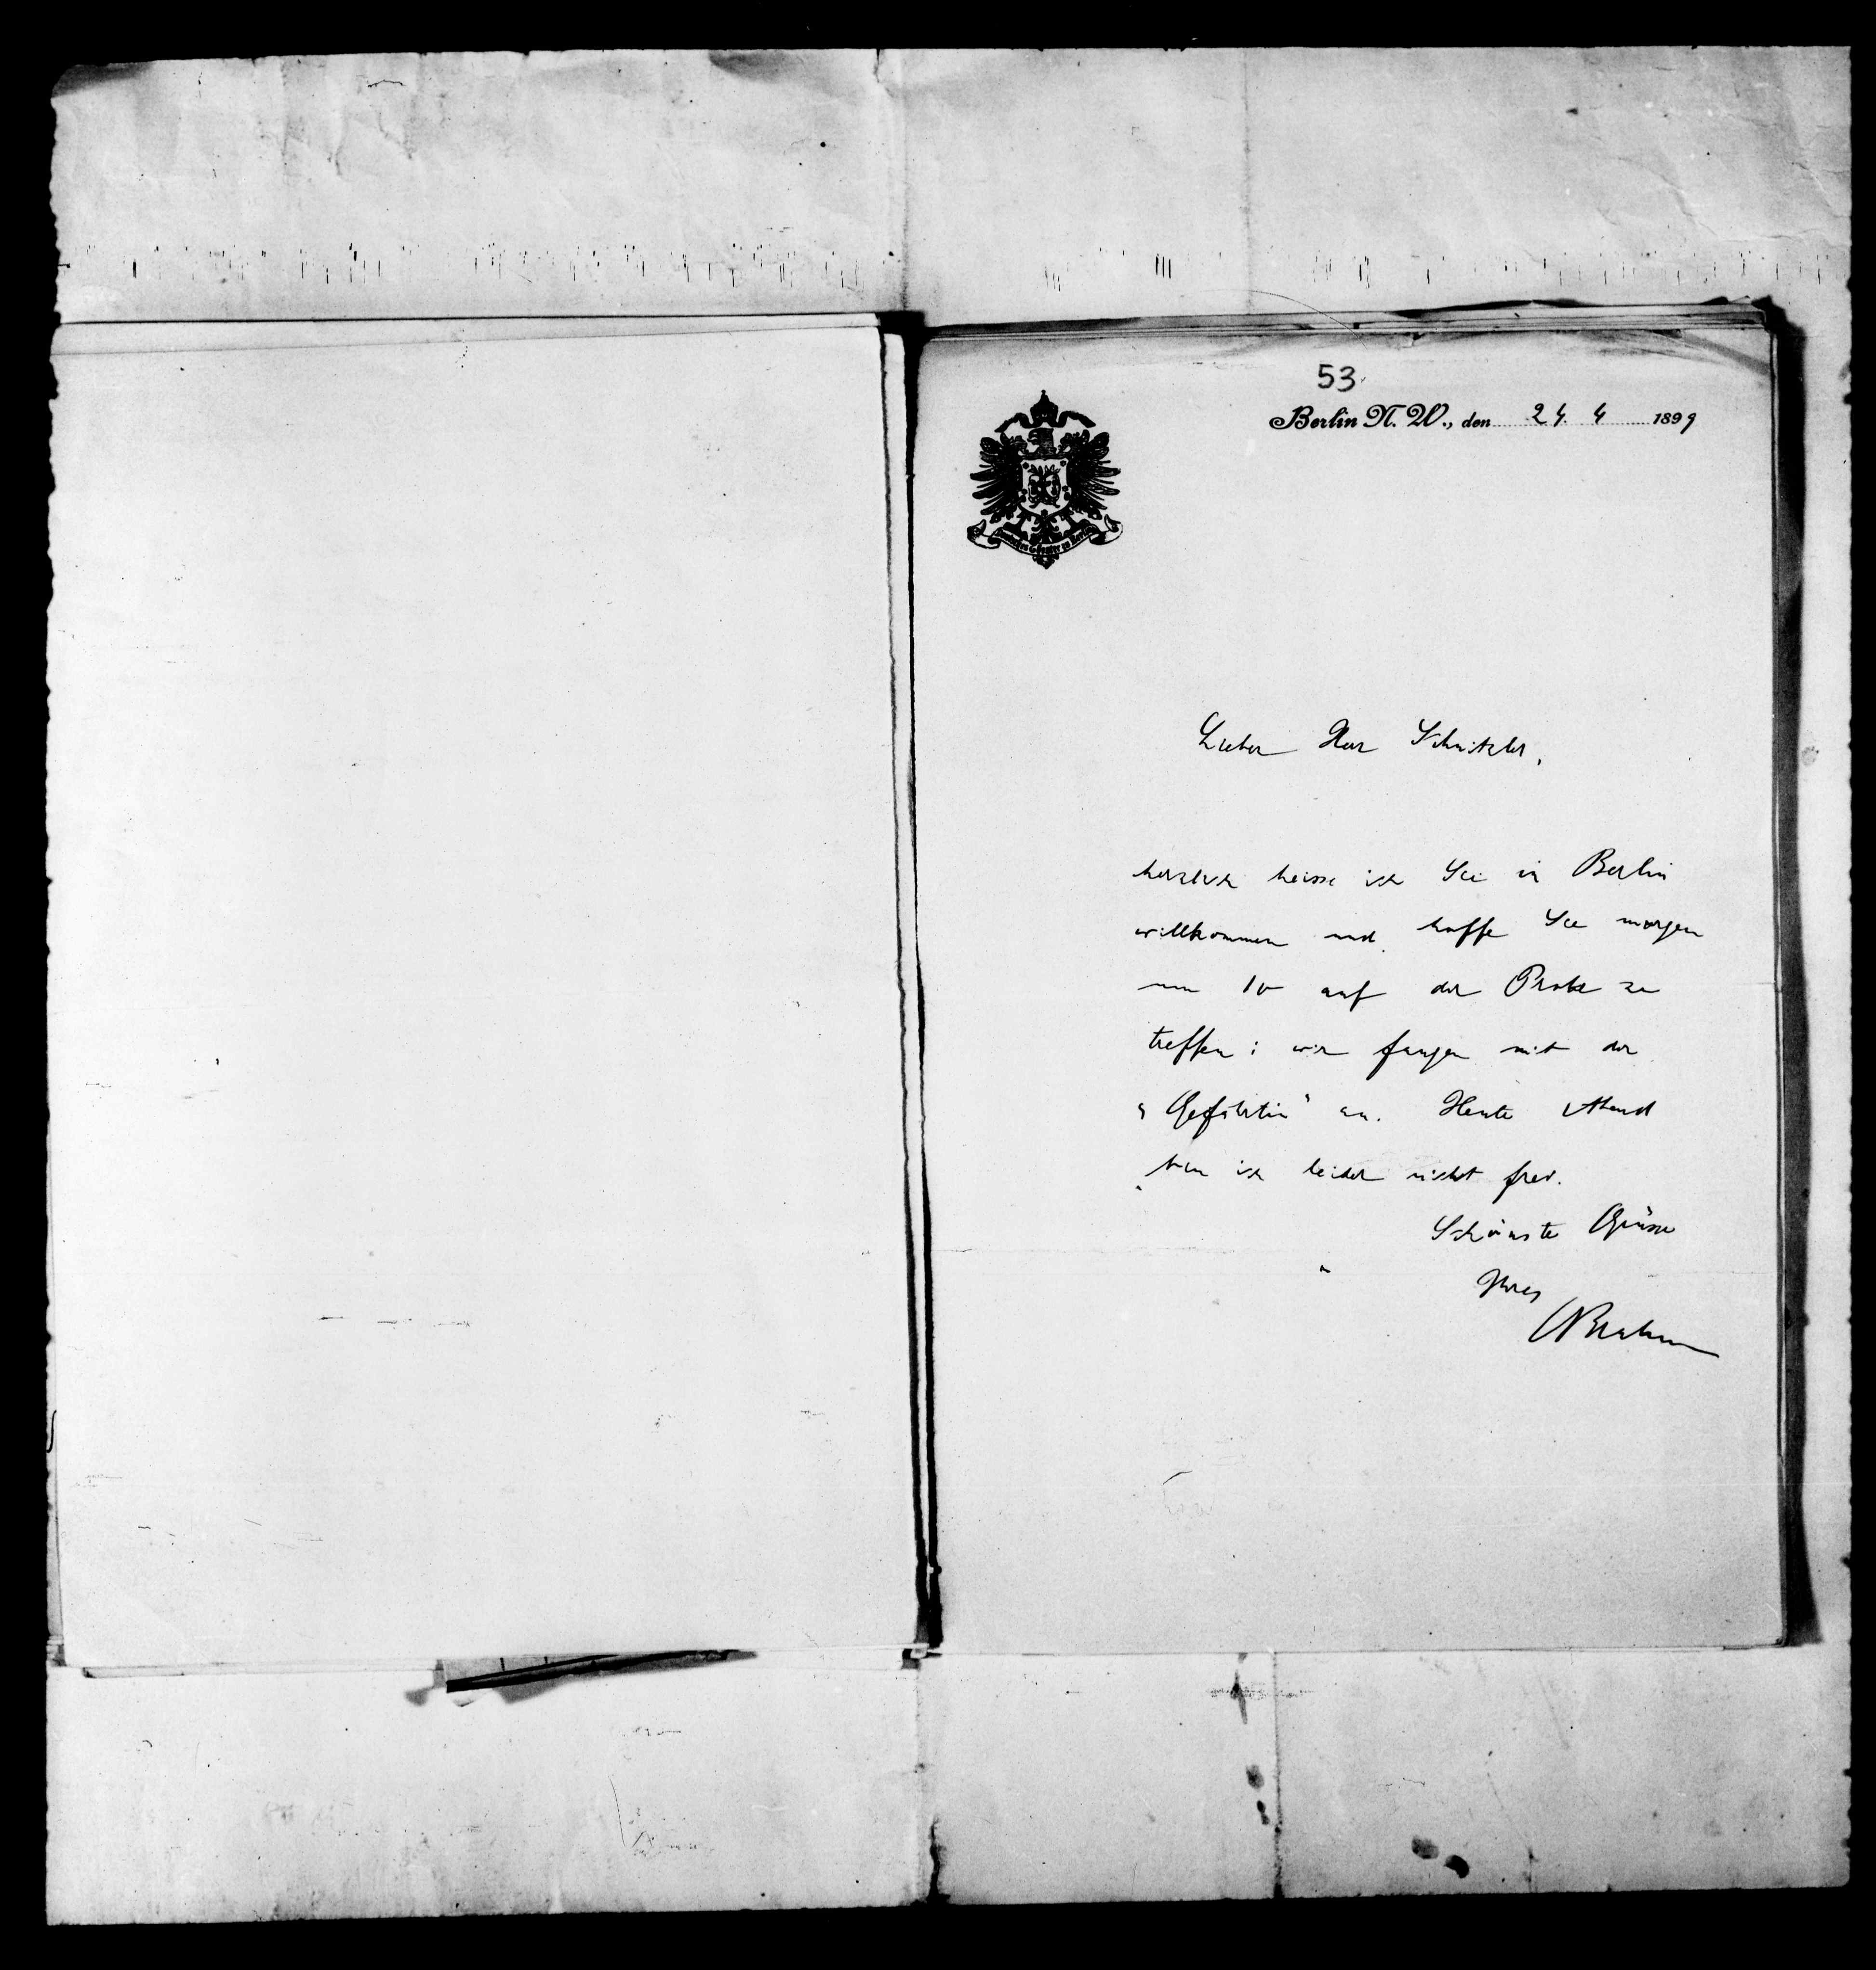 53
Berlin N. W., den 24. 4 1899
Deutsches Theater zu Berlin
Lieber Herr Schnitzler,
herzlich heisse ich Sie in Berlin
willkommen und hoffe Sie morgen
um 10 auf der Probe zu
treffen; wir fangen mit der
„Gefährtin“ an. Heute Abend
bin ich leider nicht frei.
Schönste Grüsse
Ihres
OBrahm